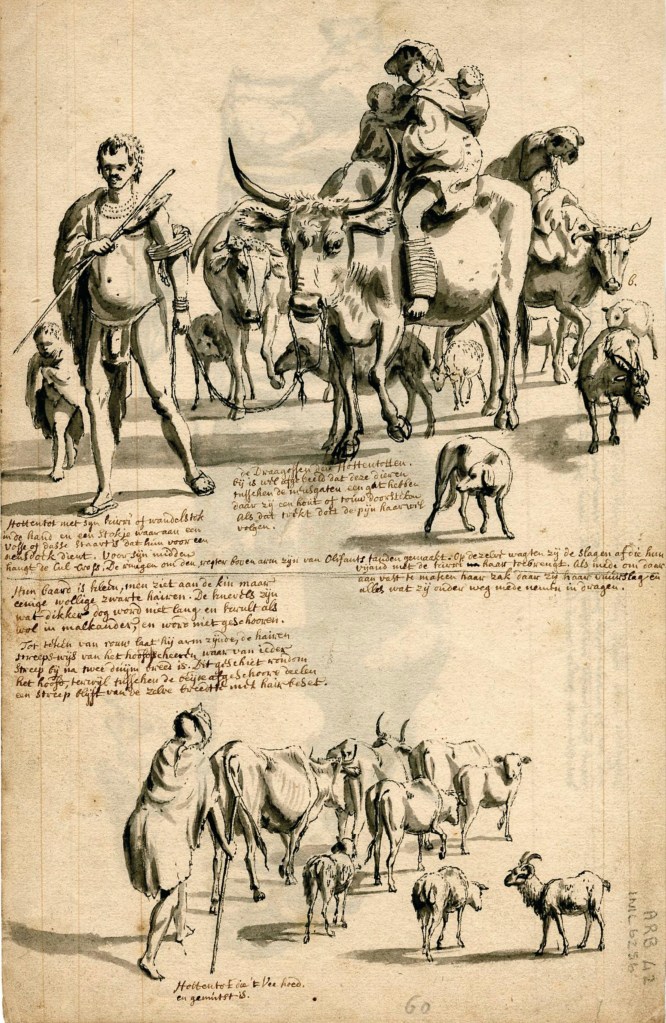 6.
de Draagossen der Hottentotten.
bij is wel afgebeeld dat deze dieren
tusschen de neusgaten een gat hebben
daar zij een hout of touw doorsteken
Als dat trekt doet de pijn haar wel
volgen.
Hottentot met syn kirri of wandelstok
in de hand en een stokje waar aan een
vosse of dasse staart is dat hem voor een
neusdoek dient. Voor sijn midden
hangt de Cul-Cross. De ringen om den regter boven arm zijn van Olifants tanden gemaakt. Op dezelve wagten zij de slagen af die hun
vijand met de kirri haar toebrengt. Als mede om daar
aan vast te maken haar zak daar zij haar vuurslag en
alles wat zij onder weg mede nemen in dragen.
Hun baard is klein, men ziet aan de kin maar
eenige wollige zwarte hairen. De knevels zijn
wat dikker dog word niet lang en krult als
wol in malkander, en word niet geschooren.
Tot teken van rouw laat hij arm zijnde, de hairen
streeps wijs van het hoofd scheeren waar van ieder
streep bij na twee duijm breed is. Dit geschiet rondom
het hoofd, terwijl tusschen de afgeschoore deelen
een streep blijft van de zelve breedte met hair beset.
Hottentot die 't Vee hoed.
en gemutst is.
60
ARB 42